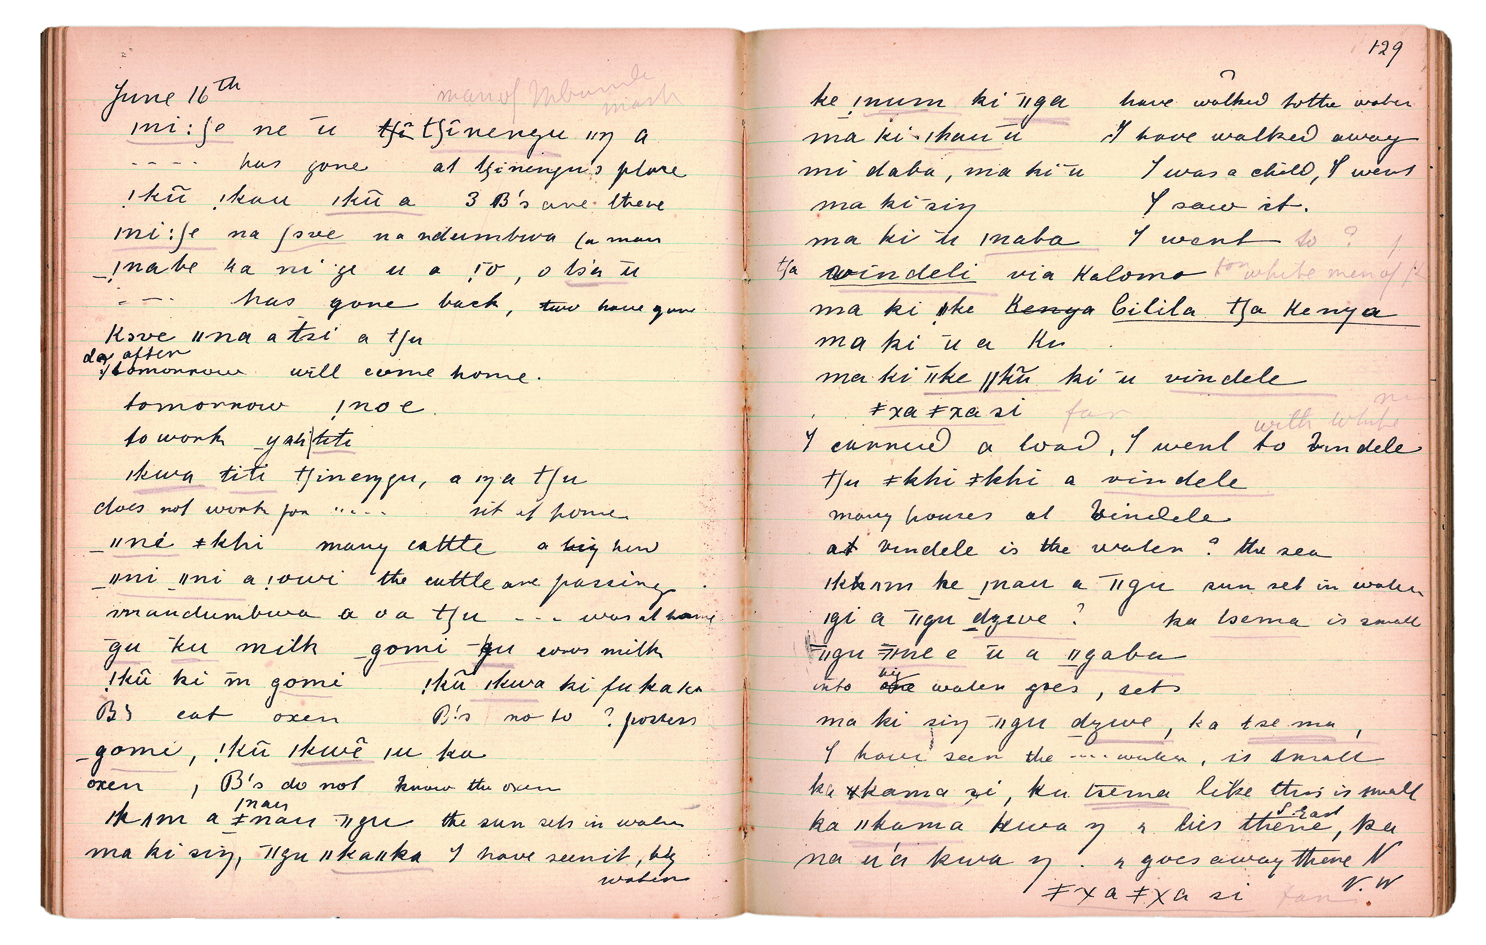 June 16th
ɪni:ʃe ne ū tʃî tʃînengu ǁŋ a
---- has gone at tʃinengu's place
!kũ !kau ɪkũ a 3 B's are there
ɪni:ʃe na ʃwe na ndumbwa (a man
_!nabe ka ni ge u a !o, o ts'a ū
--- has gone back, two have gone
Kswe ǁna a tsi a tʃu
day after
tomorrow will come home.
tomorrow !noe
to work _yati titi
ɪkwa titi tʃinengu, a ŋa tʃu
does not work for ---- sit at home
_ǁne ǂkhi many cattle a big herd
_ǁni ǁni a !owi the cattle are passing
mandumbwa a oa tʃu --- was at home
gu ku milk _gomi gu cows milk
!kũ ki m̄ gomi !kũ ɪkwa ki fukaka
B's eat oxen B's no to ? possess
_gomi, !kũ ɪkwê ɪu ka
oxen, B's do not know the oxen
ɪnau
ɪkʌm a ǂnau ǁgu the sun sets in water
ma ki siŋ, ǁgu ǁkaǁka I have seen it, big
water
129
ke ɪnum ki ǁga have walked to the water
ma ki ɪkau ū I have walked away
mi daba, ma ki ū I was a child, I went
ma ki siŋ I saw it.
ma ki ū ɪnaba I went to ?
tʃa windeli via Kalomo white men of
ma ki ǁke Kenya Cilila tʃa Kenya
ma ki ū a Ku
ma ki ǁke ǁkũ ki ū vindele
ǂxa ǂxa si far
with white
I carried a load, I went to Vindele
tʃu ǂkhi ǂkhi a vindele
many houses at Vindele
at vindele is the water? the sea
ɪkʌm ke ɪnau a ǁgu sun set in water
ɪgi a ǁgu dzwe? ka tsema is small
ǁgu ǂne e ū a ǁgaba
big
into one water goes, sets
ma ki siŋ ǁgu dzwe, ka tsema,
I have seen the ---- water, is small
ka ǂkama si, ka tsema like this is small
S. East
ka ǁkama kwa ŋ " lies there, ka
na u'a kwa ŋ. " goes away there N
N.W
ǂxa ǂxa si far